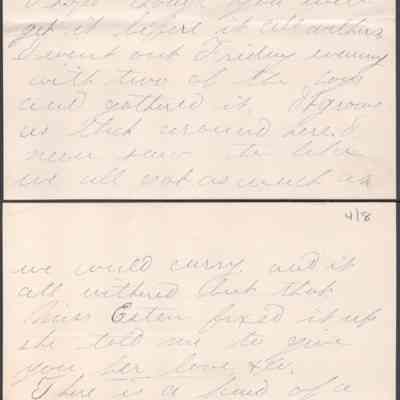 though you will
get it before it all withers
I went out Friday evening
with two of the boys
and gathered it. It grows
as thick around here. I
never saw the like
we all got as much as
4/8
we could curry. and it
all withered but that
Miss Esten fixed it up
she told me to give
you her love &c.
There is a kind of a